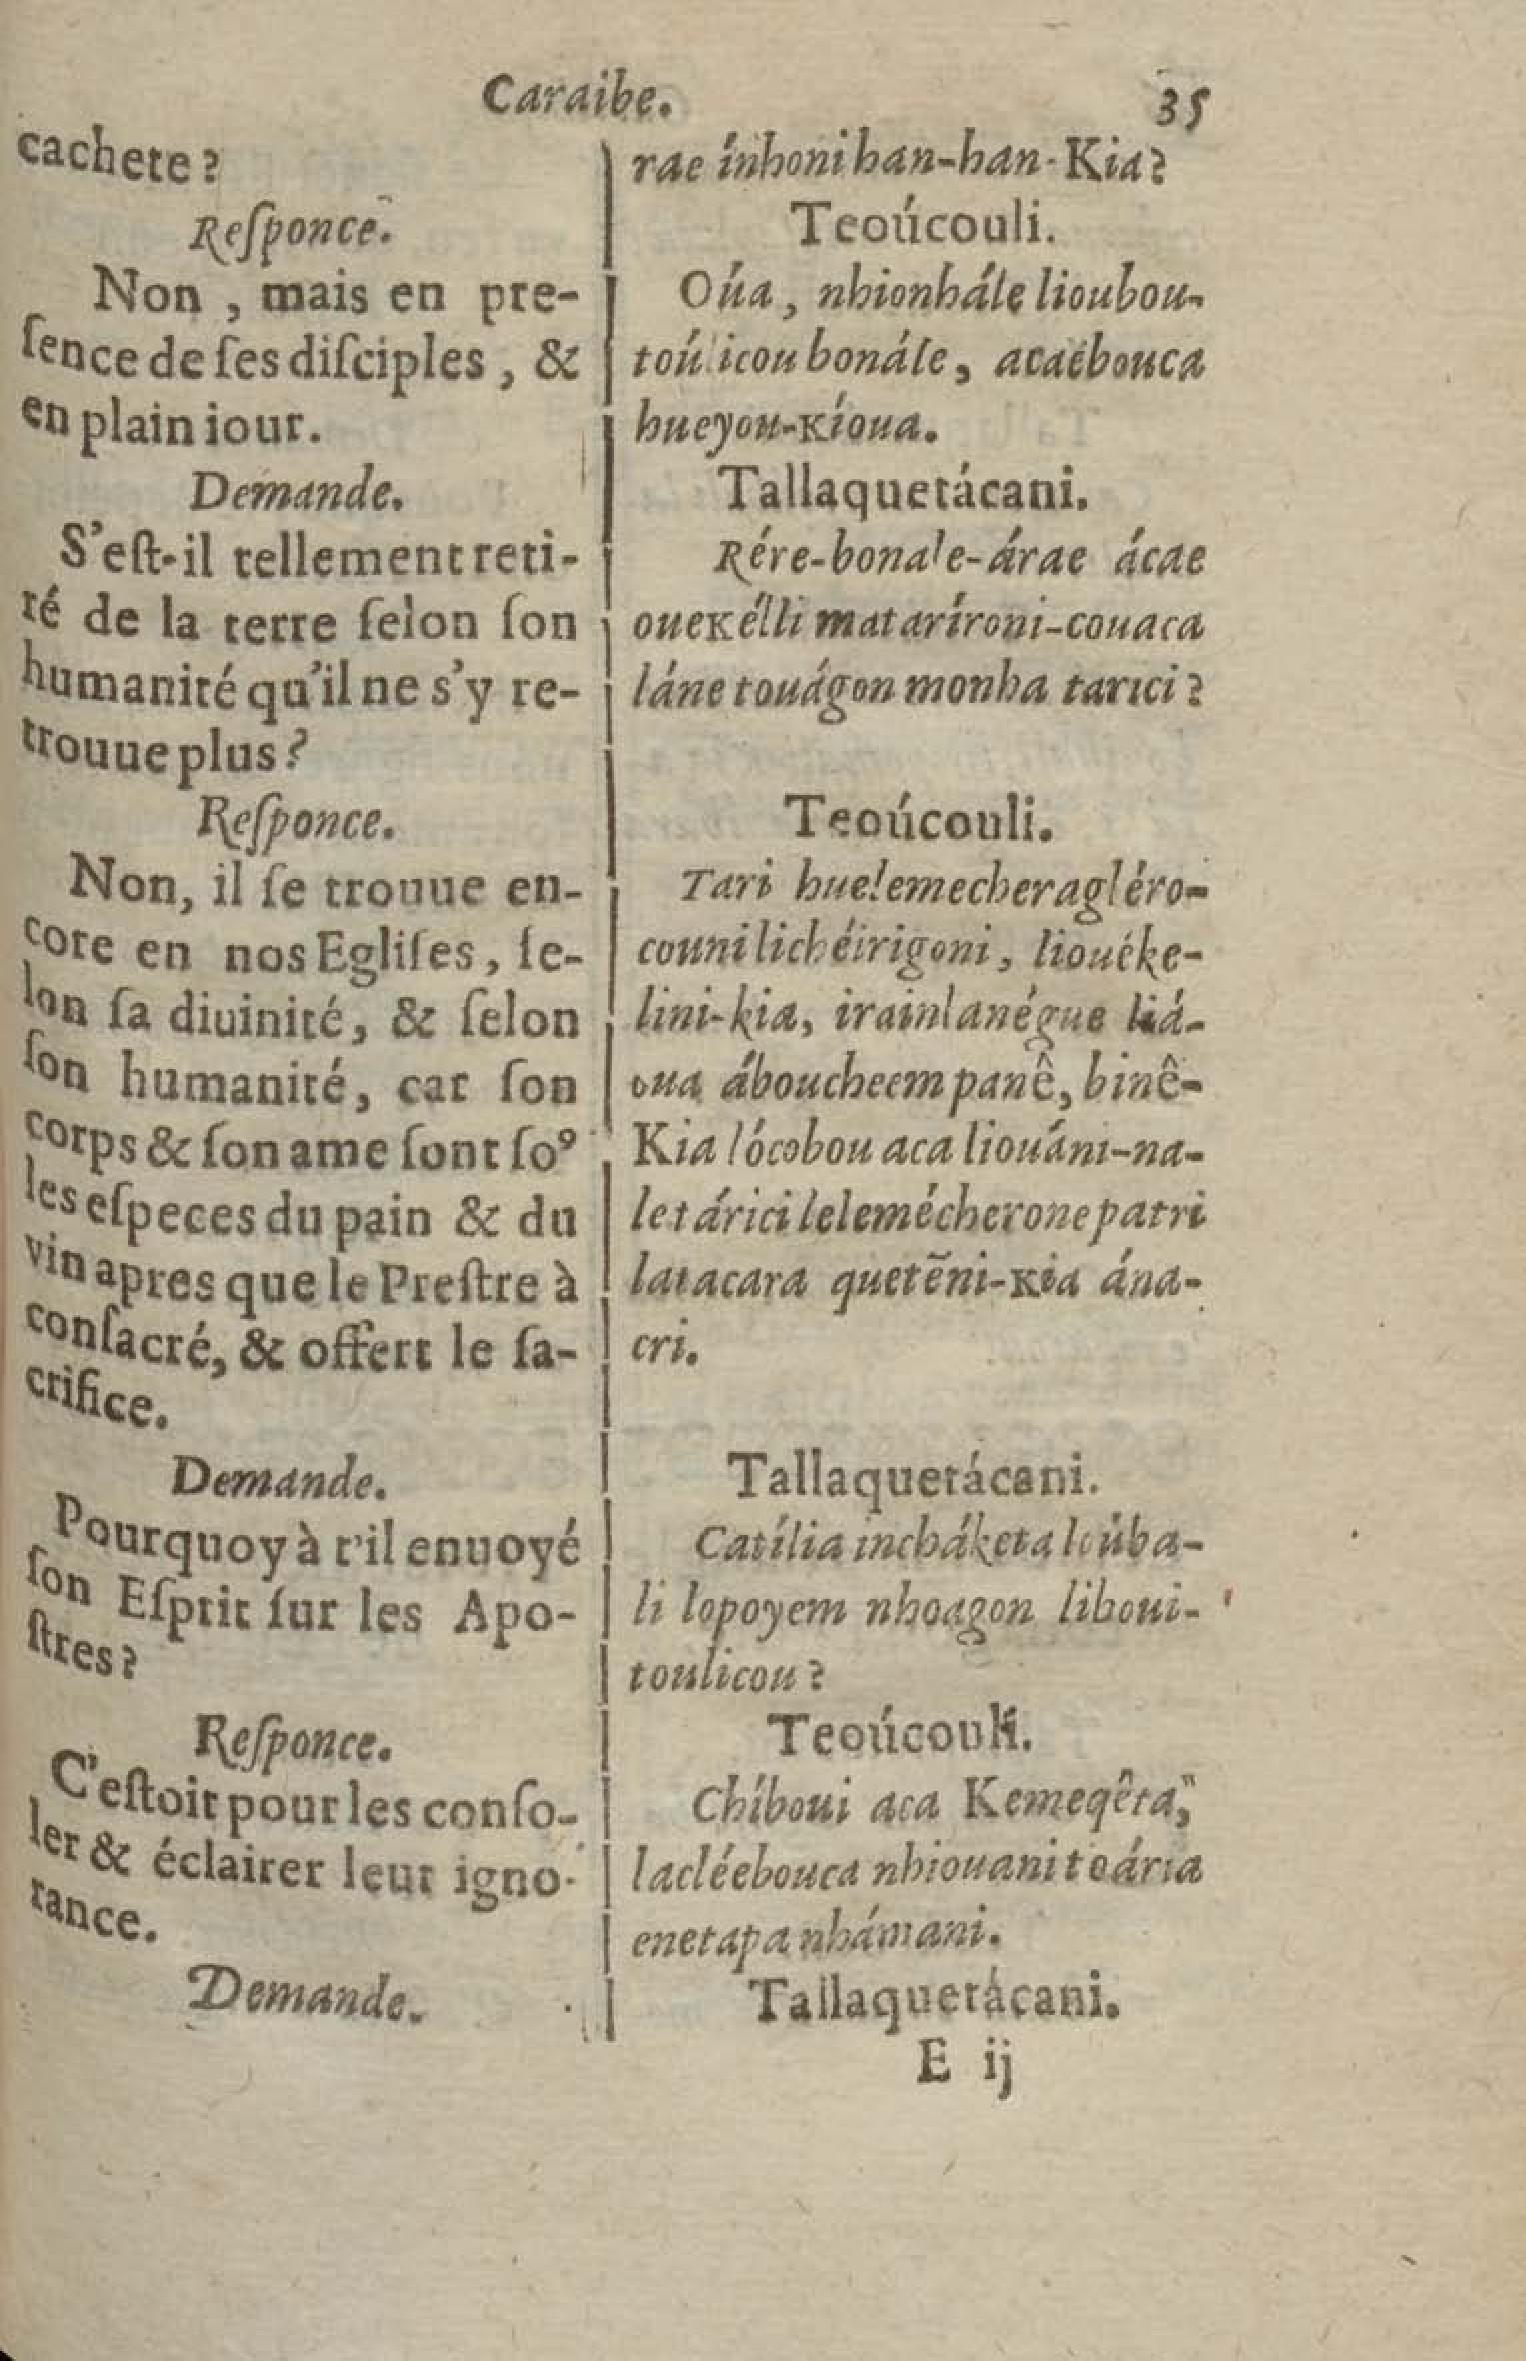 Caraibe. 35
cachete?
Reſponce.
Non, mais en pre-
ſence de ſes diſciples, &
en plain iour.
Demande.
S'eſt-il tellement reti-
ré de la terre ſelon ſon
humanité qu'il ne s'y re-
trouue plus?
Reſponce.
Non, il ſe trouue en-
core en nos Egliſes, ſe-
lon ſa diuinité, & ſelon
ſon humanité, car ſon
corps & ſon ame ſont ſoꝰ
les eſpeces du pain & du
vin apres que le Preſtre à
conſacré, & offert le ſa-
crifice.
Demande.
Pourquoy à t'il enuoyé
ſon Eſprit ſur les Apo-
ſtres?
Reſponce.
C'eſtoit pour les conſo-
ler & éclairer leur igno-
rance.
Demande.
rae ínhoni han-han-Kia?
Teoúcouli.
Oúa, nhionhále lioubou-
toúlicou bonále, acaëbouca
hueyou-Kíoua.
Tallaquetácani.
Rére-bonale-árae ácae
oueKélli mataríroni-couaca
láne touágon monha tarici?
Teoúcouli.
Tari huelemecheragléro-
couni lichéirigoni, liouéke-
lini-kia, irainlanégue liá-
oua áboucheem panê, binê-
Kia lócobou aca liouáni-na-
le tárici lelemécherone patri
latacara quetẽni-Kia ána-
cri.
Tallaquetácani.
Catília incháketa loúba-
li lopoyem nhoagon liboui-
toulicou?
Teoúcouli.
Chíboui aca Kemeqêta,
lacléebouca nhiouani toária
enetapa nhámani.
Tallaquetácani.
E ij